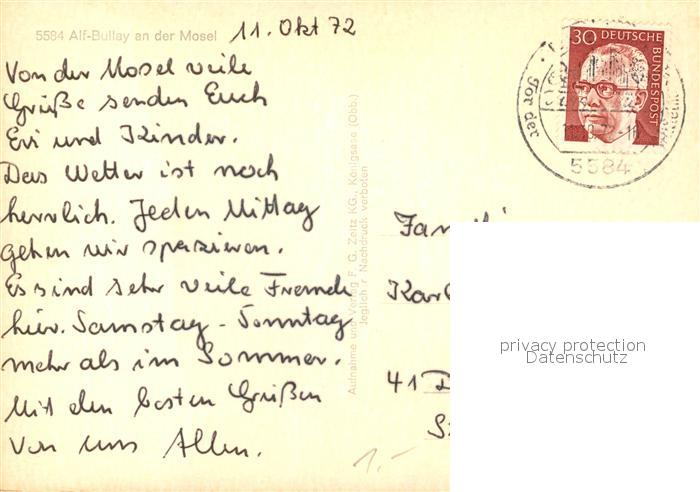 5584 Alf-Bullay an der Mosel
11. Okt 72
Von der Mosel veile
Grüße senden Euch
Evi und Kinder.
Das Wetter ist noch
herrlich. Jeden Mittag
gehen wir spazieren.
Es sind sehr veile Fremde
hier. Samstag - Sonntag
mehr als im Sommer.
Mit den besten Grüßen
Von uns Allen.
Aufnahme und Verlag F. G. Zeitz KG., Königssee (Obb.)
Jeglicher Nachdruck verboten
30 DEUTSCHE
BUNDESPOST
Tor der
5584
Fam
Karl
41 D
1.-
privacy protection
Datenschutz